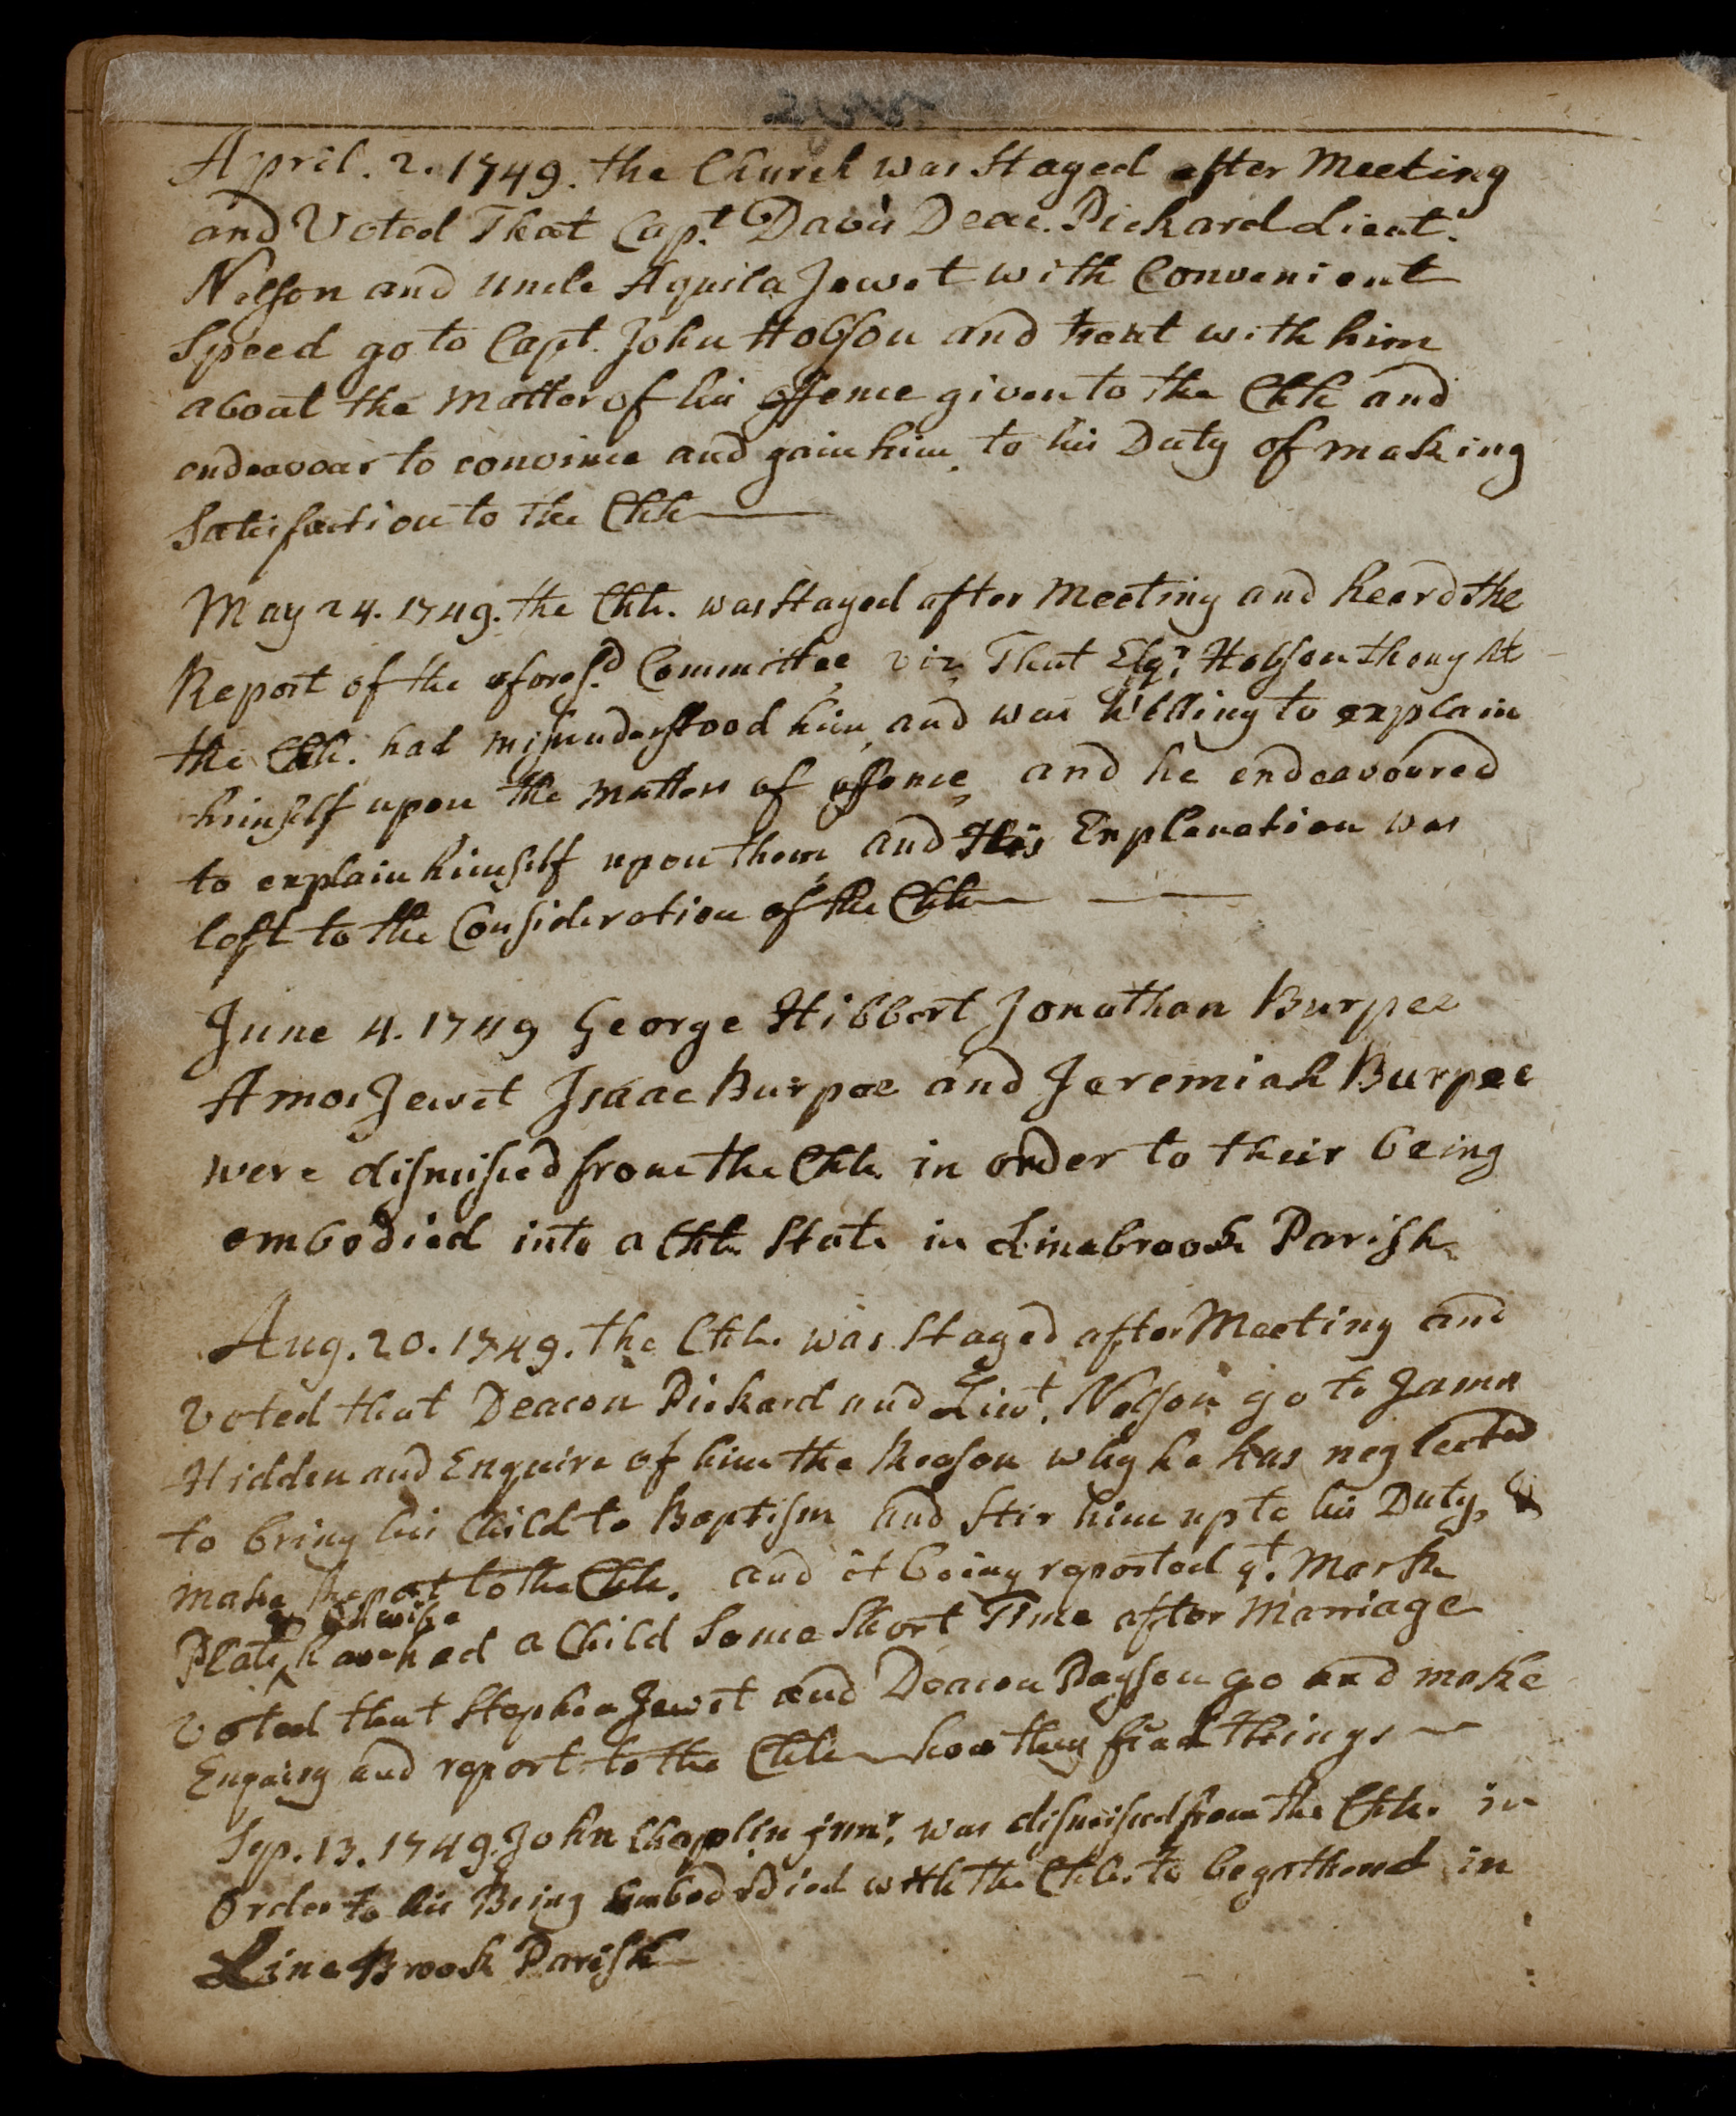 April. 2. 1749. the Church was Stayed after Meeting
and Voted That Capt. Davis Deac. Pickard Lieut.
Nelson and uncle Aquila Jewet with Convenient
Speed go to Capt. John Hobson and treat with him
about the Matter of his offence given to the Chh and
endeavour to convince and gain him to his Duty of making
Satisfaction to the Chh
May 24. 1749. the Chh. was Stayed after Meeting and heard the
Report of the aforesd. Committee viz That Esqr. Hobson thought
the Chh. had misunderstood him and was Willing to explain
himself upon the matters of offence, and he endeavoured
to explain himself upon them, and His Explanation was
left to the Consideration of the Chh
June 4. 1749 George Hibbert Jonathan Burpee
Amos Jewet Isaac Burpee and Jeremiah Burpee
were dismissed from the Chh. in order to their being
embodied into a Chh State in Linebrook Parish
Aug. 20. 1749. the Chh. was Stayed after Meeting and
Voted that Deacon Pickard and Lieut. Nelson go to James
Hidden and Enquire of him the Reason why he has neglected
to bring his Child to Baptism and Stir him up to his Duty, &
make Report to the Chh. and it being reported yt. Mark
& his wife
Plats have had a Child Some Short Time after Marriage
Voted that Stephen Jewet and Deacon Payson go and make
Enquiry and report to the Chh how they find things
Sep. 13. 1749. John Chaplin junr. was dismissed from the Chh. in
Order to his Being Embodried with the Chh. to be gathered in
Line Brook Parish